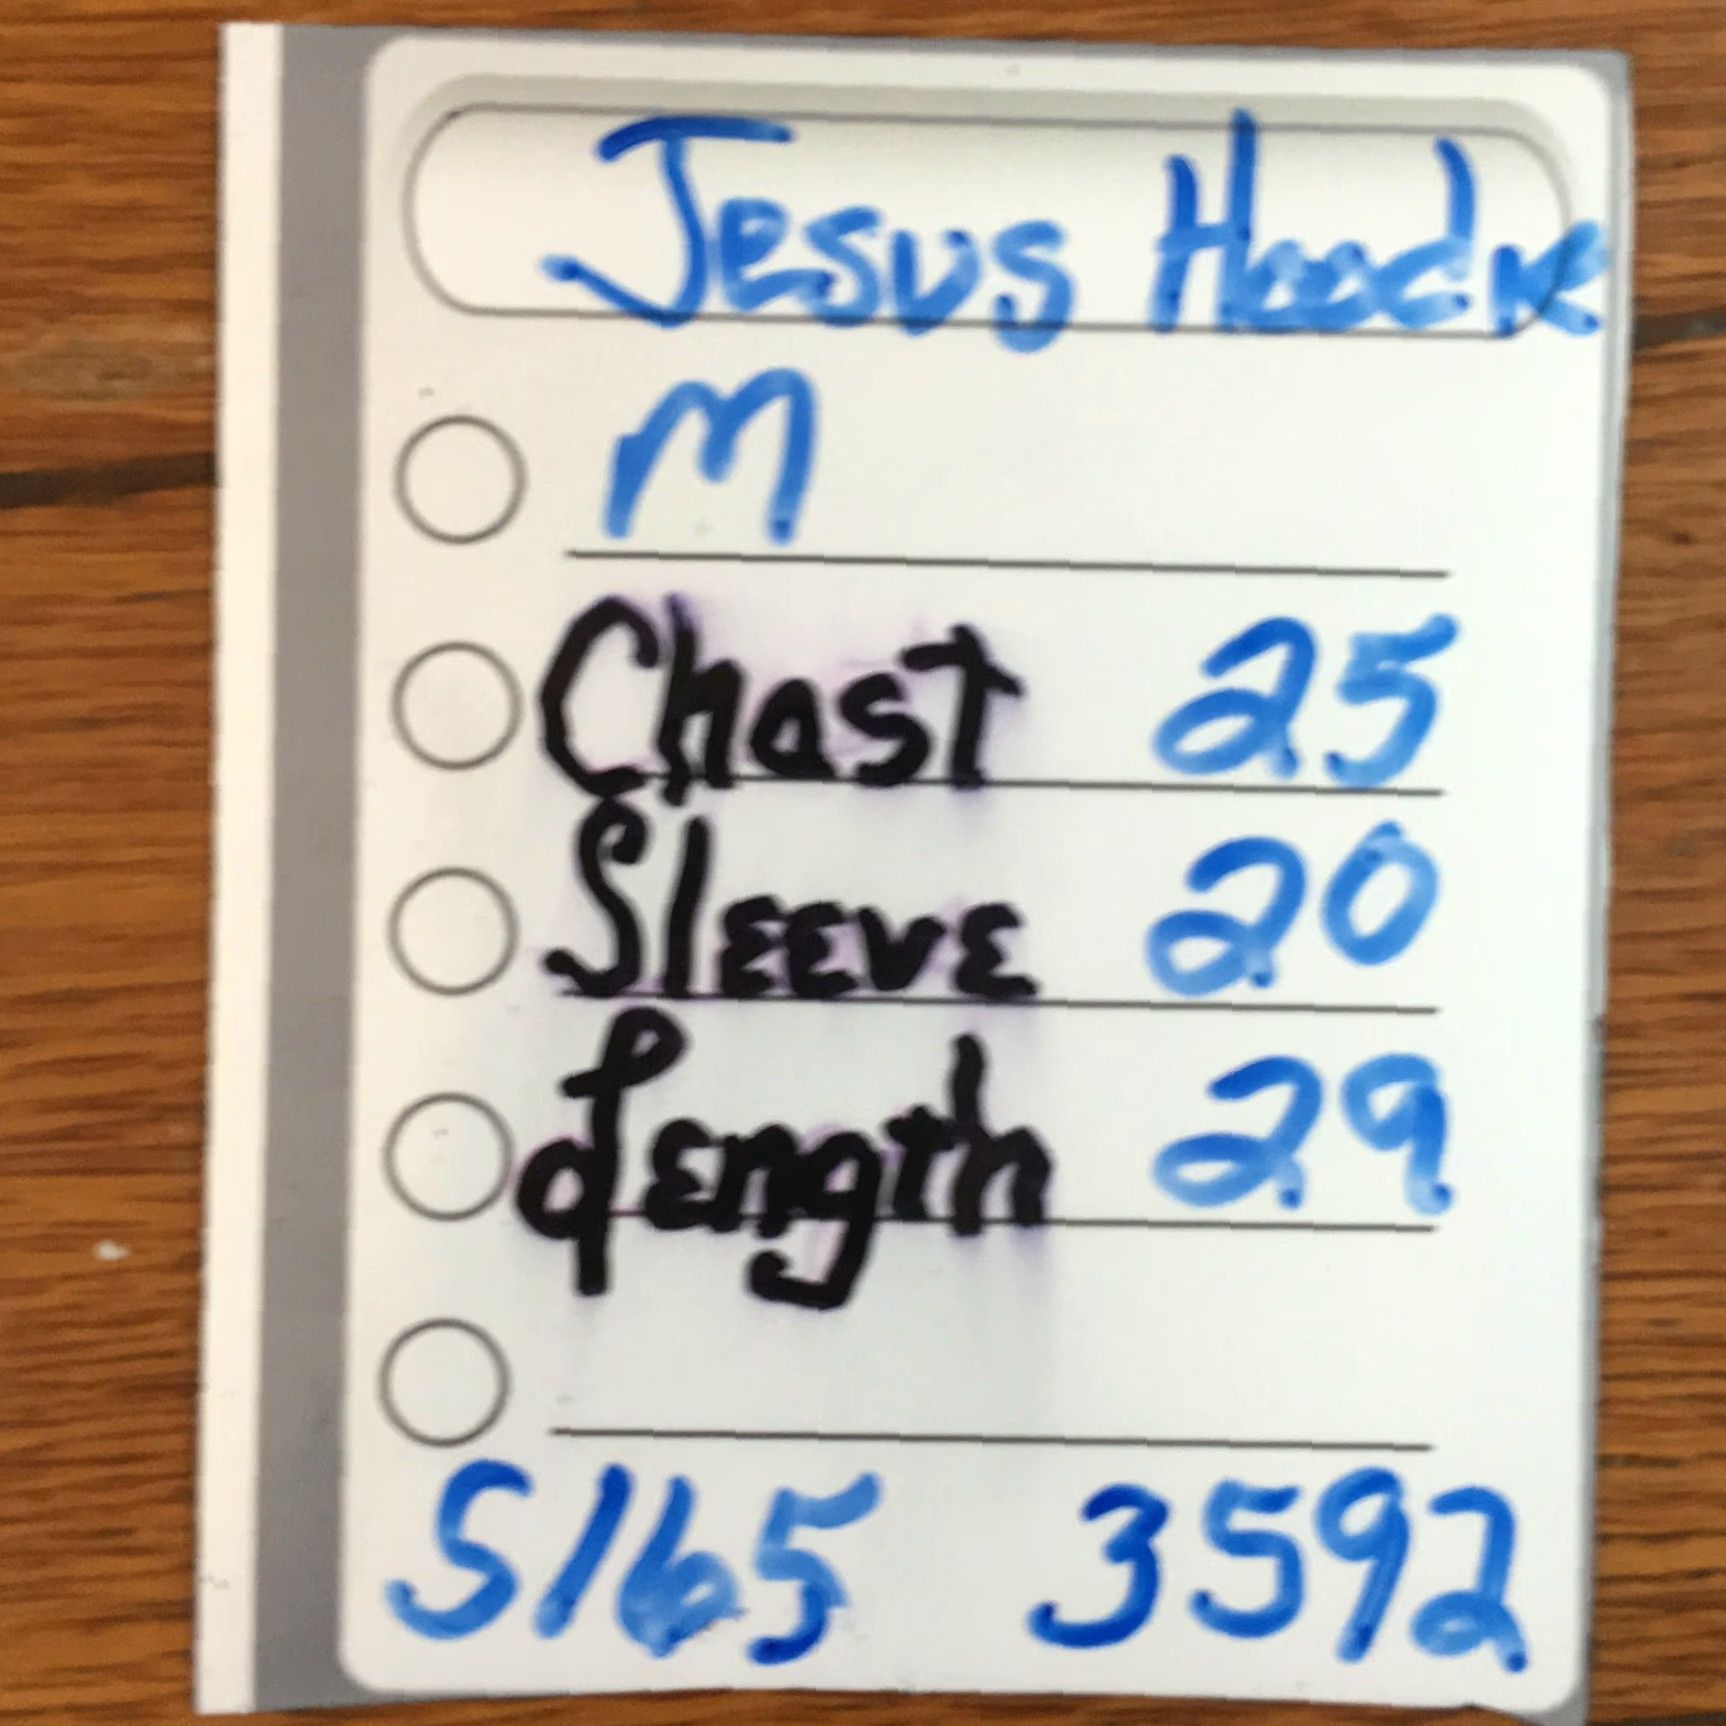 Jesus Hoodie
M
Chast 25
Sleeve 20
Length 29
S165 3592